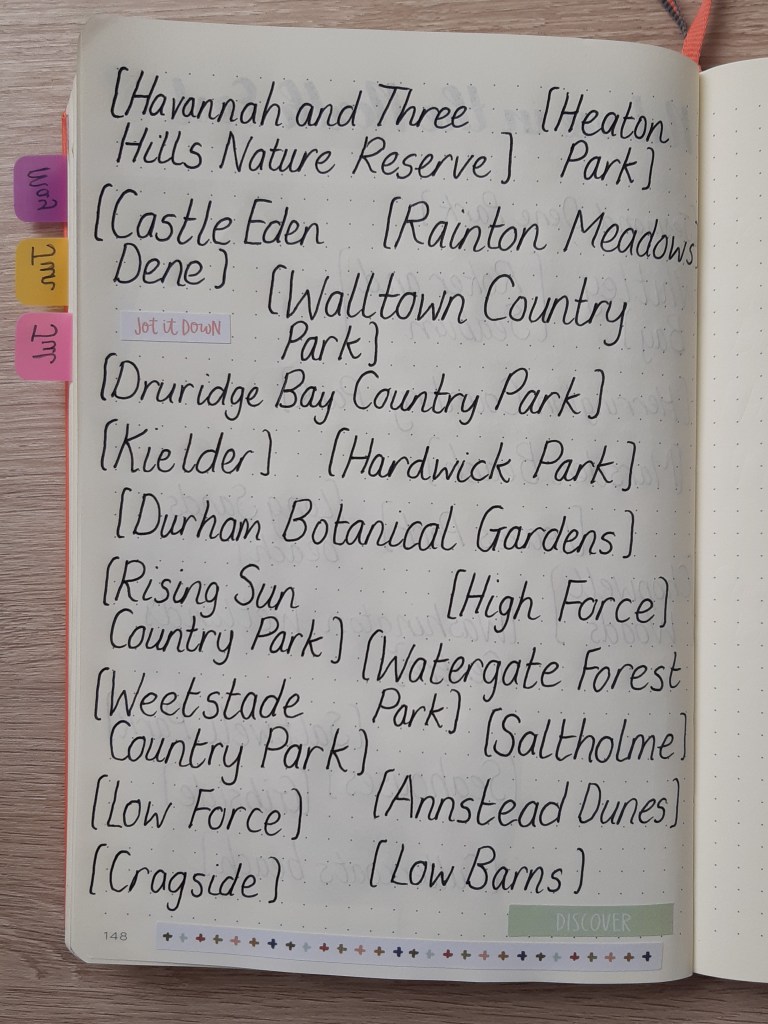 [Havannah and Three Hills Nature Reserve]
[Heaton Park]
[Castle Eden Dene]
[Rainton Meadows]
[Walltown Country Park]
Jot it Down
[Druridge Bay Country Park]
[Kielder]
[Hardwick Park]
[Durham Botanical Gardens]
[Rising Sun Country Park]
[High Force]
[Watergate Forest Park]
[Weetstade Country Park]
[Saltholme]
[Low Force]
[Annstead Dunes]
[Cragside]
[Low Barns]
DISCOVER
148